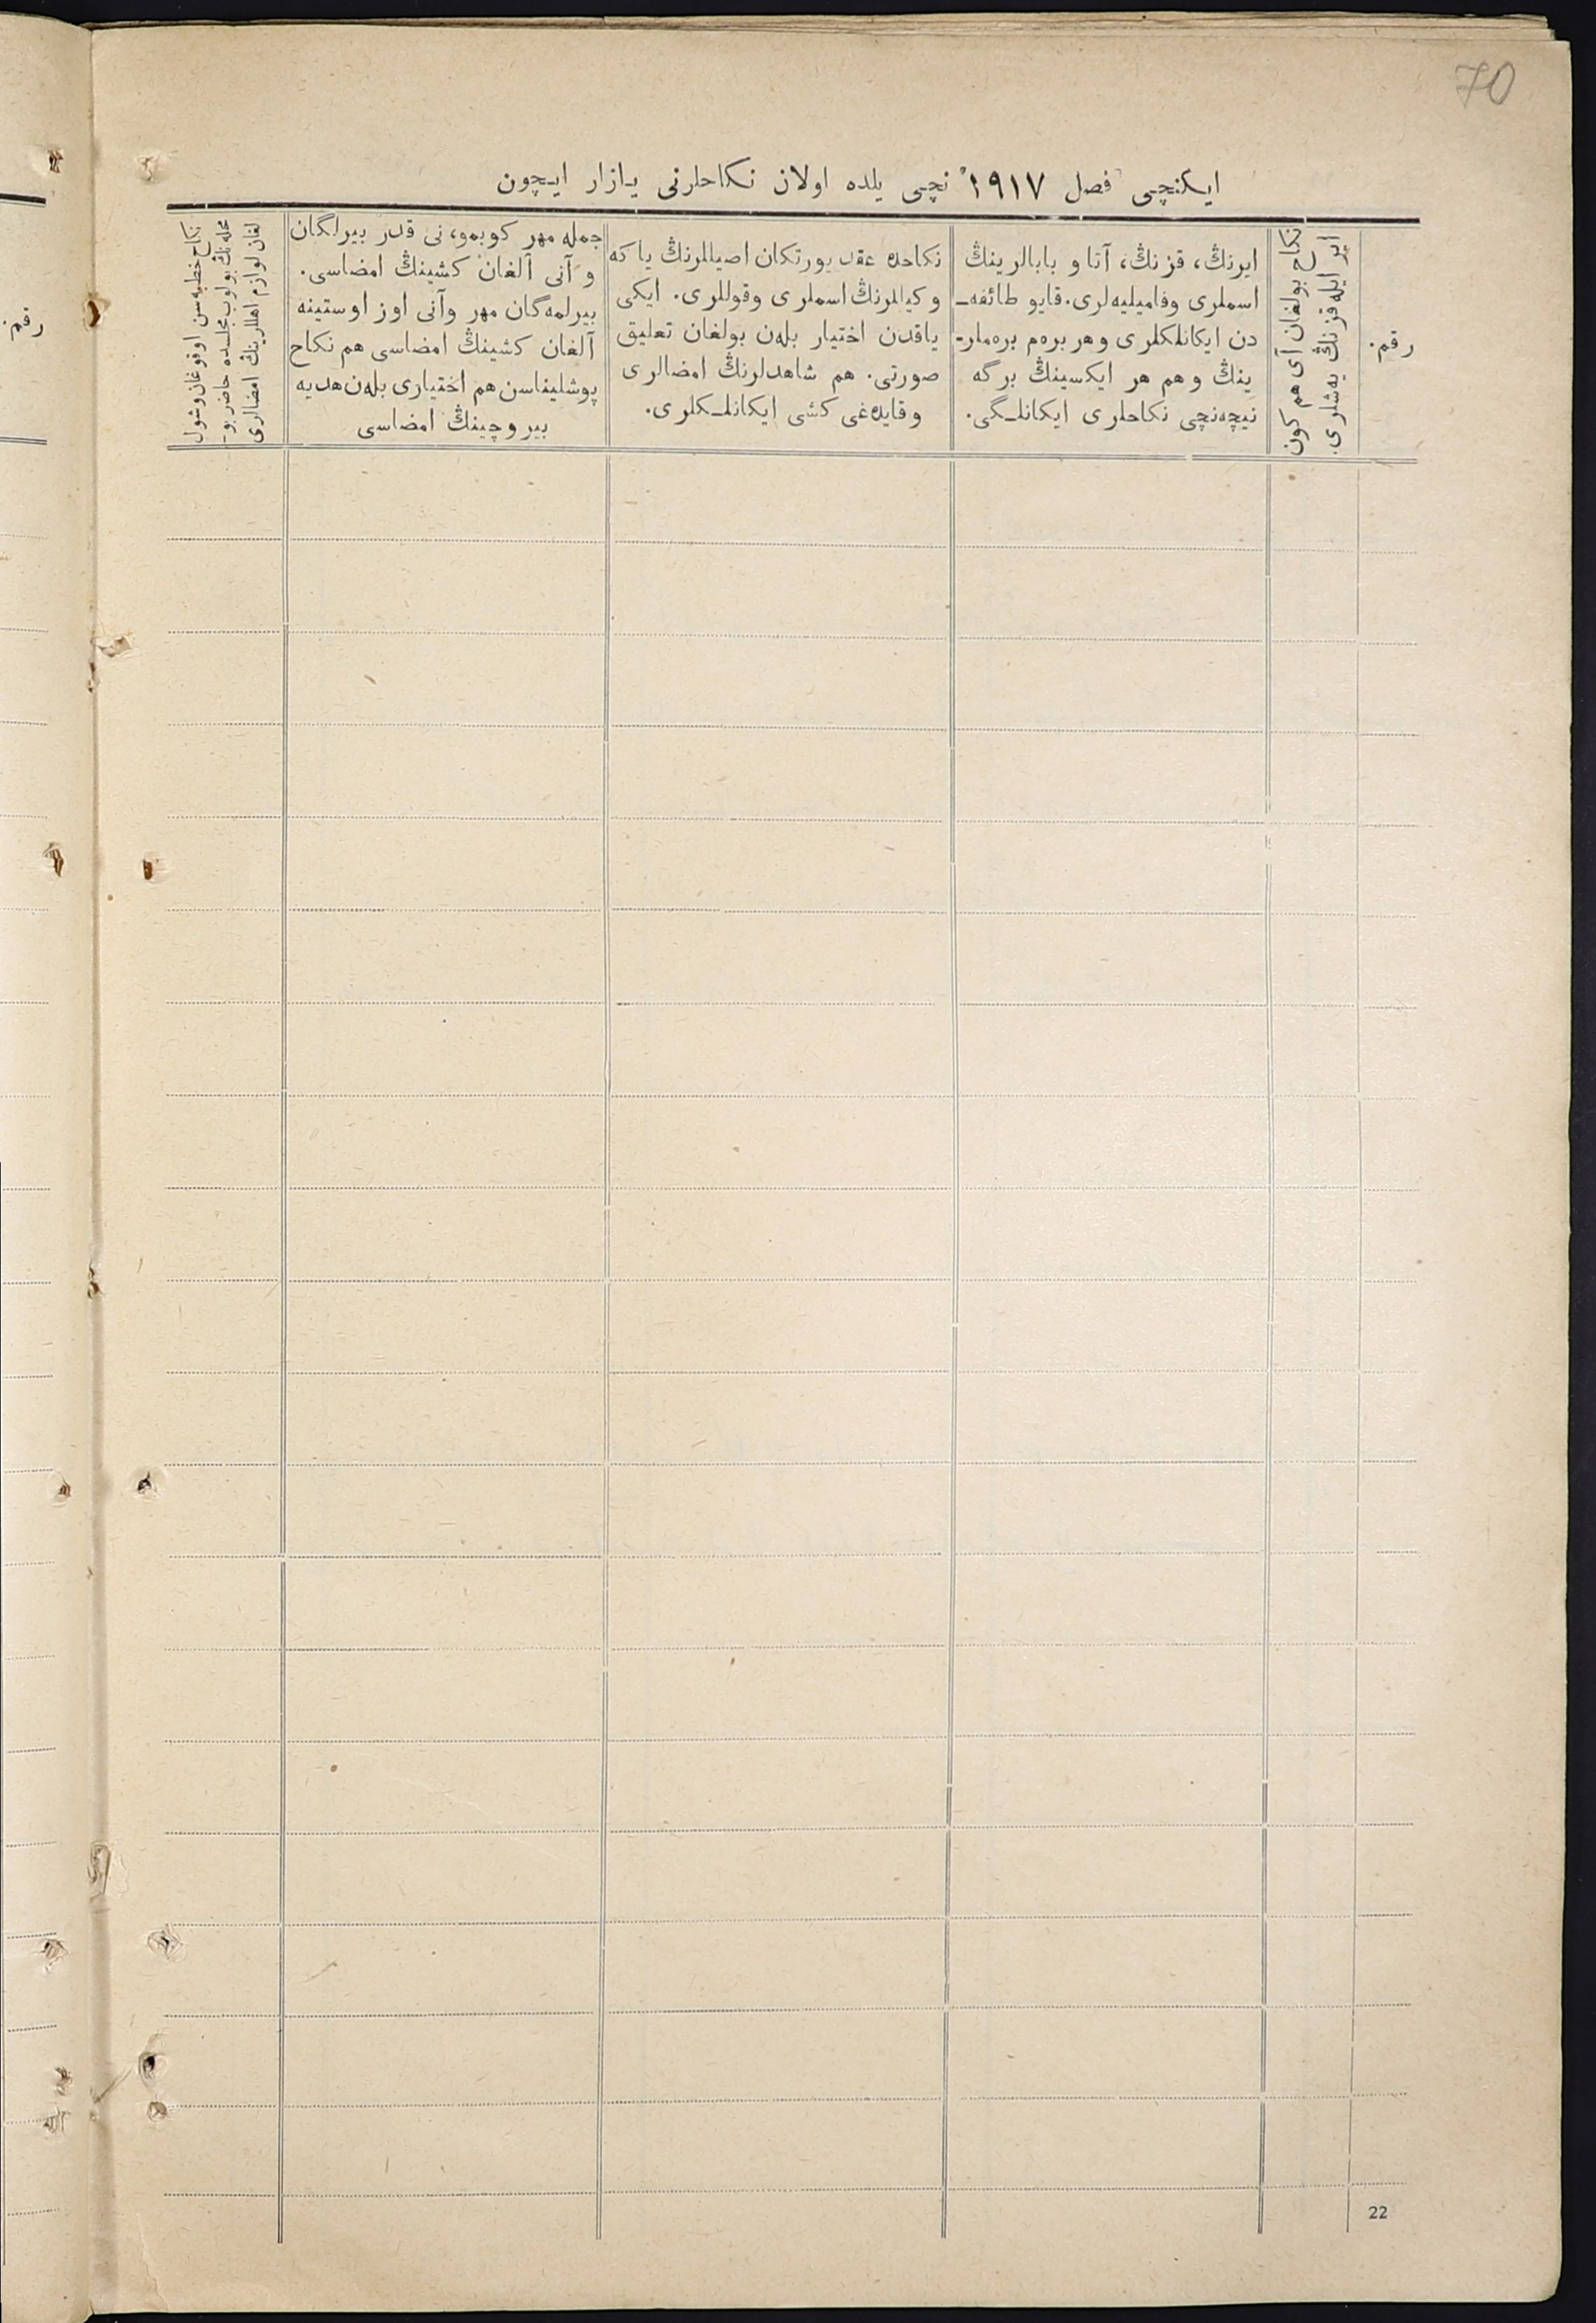 70
ایكنچی فصل ۱۹۱۷ نچی یلده اولان نكاحلرنی یازار ایچون
رقم.
نكاح بولغان آی هم كون
ایر ایله قزنڭ یه‌شلری.
ایرنڭ، قزنڭ، آتا و بابالرینڭ
اسملری وفامیلیه‌لری. قایو طائفه‌ـ
دن ایكانلكلری وهر بره‌م بره‌ملرـ
ینڭ وهم هر ایكسینڭ برگه
نیچه‌نچی نكاحلری ایكانلـگی.
نكاحده عقد یورتكان اصیللرنڭ یا كه
وكیللرنڭ اسملری وقوللری. ایكی
یاقدن اختیار بله‌ن بولغان تعلیق
صورتی. هم شاهدلرنڭ امضالری
وقایده‌غی كشی ایكانلـكلری.
جمله مهر كوبمو، نی قدر بیرلگان
و آنی آلغان كشینڭ امضاسی.
بیرلمه‌گان مهر وآنی اوز اوستینه
آلغان كشینڭ امضاسی هم نكاح
پوشلیناسن هم اختیاری بله‌ن هدیه
بیروچینڭ امضاسی
نكاح خطبه‌سن اوقوغان وشول
محله‌نڭ بولوب مجلسده حاضر بوـ
لغان لوازم اهللرینڭ امضالری
رقم.
22